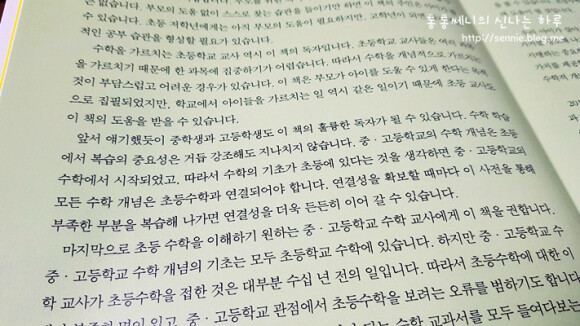 은 없습니다. 부모의 도움 없이 스스로 하는 습관을 들이기만 하면 이 책의 주인은 아이가
수 있습니다. 초등 저학년에게는 아직 부모의 도움이 필요하지만, 고학년이 되
적인 공부 습관을 형성할 필요가 있습니다.
수학을 가르치는 초등학교 교사 역시 이 책의 독자입니다. 초등학교 교사들은 여러 과목
을 가르치기 때문에 한 과목에 집중하기가 어렵습니다. 따라서 수학을 개념적으로 가르치는
것이 부담스럽고 어려운 경우가 있습니다. 이 책은 부모가 아이를 도울 수 있게 한다는 목적
으로 집필되었지만, 학교에서 아이들을 가르치는 일 역시 같은 일이기 때문에 초등 교사도
이 책의 도움을 받을 수 있습니다.
앞서 얘기했듯이 중학생과 고등학생도 이 책의 훌륭한 독자가 될 수 있습니다. 수학 학습
에서 복습의 중요성은 거듭 강조해도 지나치지 않습니다. 중·고등학교의 수학 개념은 초등
수학에서 시작되었고, 따라서 수학의 기초가 초등에 있다는 것을 생각하면 중·고등학교의
모든 수학 개념은 초등수학과 연결되어야 합니다. 연결성을 확보할 때마다 이 사전을 통해
부족한 부분을 복습해 나가면 연결성을 더욱 든든히 이어 갈 수 있습니다.
마지막으로 초등 수학을 이해하기 원하는 중·고등학교 수학 교사에게 이 책을 권합니다.
중·고등학교 수학 개념의 기초는 모두 초등학교 수학에 있습니다. 하지만 중·고등학교 수
학 교사가 초등수학을 접한 것은 대부분 수십 년 전의 일입니다. 따라서 초등수학에 대한 이
부족한 면이 있고, 중·고등학교 관점에서 초등수학을 보려는 오류를 범하기도 합니다
수학 교과서를 모두 들여다보는
동동쎄니의 신나는 하루
http://sennie.blog.me